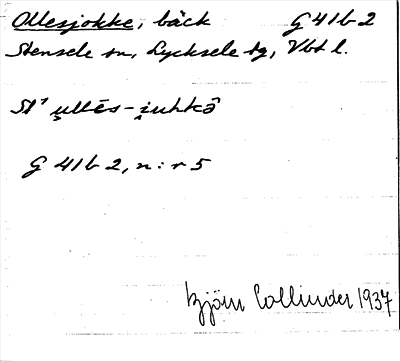 Ollesjokke, bäck G 41 b 2
Stensele sn, Lycksele tg, Vbt l.
St¹ u̯llēs-i̯uhkâ
G 41 b 2, n:r 5
Björn Collinder 1937